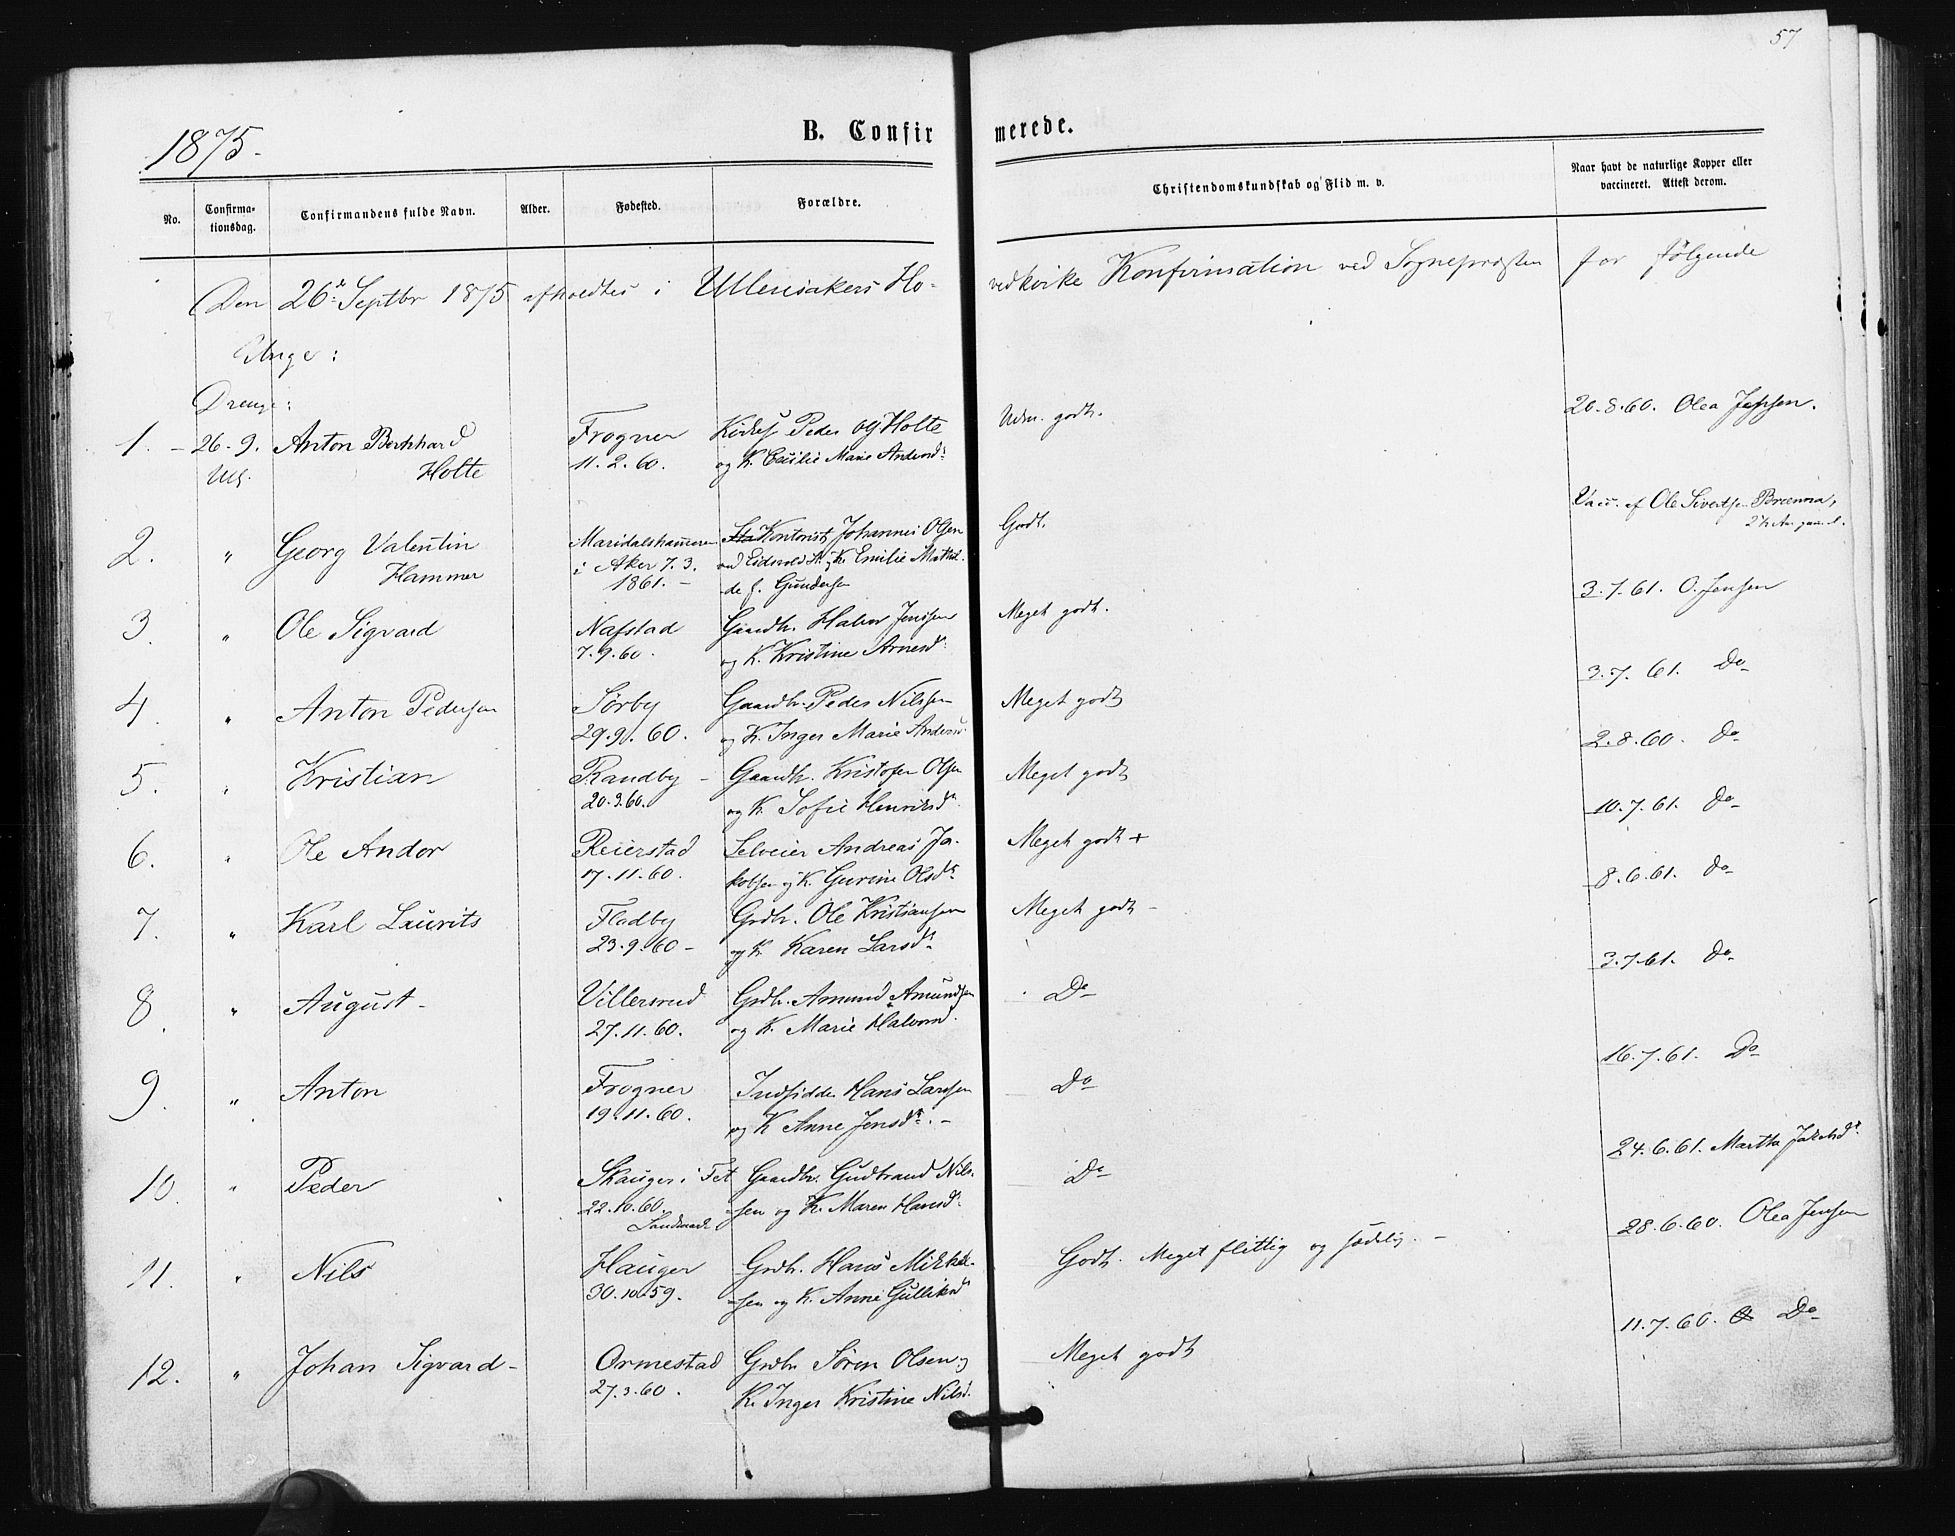 57
1875.
B. Confirmerede.
No.
Confirma-
tionsdag.
Confirmandens fulde Navn.
Alder.
Fødested.
Forældre.
Christendomskundskab og Flid m. v.
Naar havt de naturlige Kopper eller
vaccineret. Attest derom.
Den 26de Septbr 1875 afholdtes i Ullensakers Ho- vedkirke Konfirmation ved Sognepræsten for følgende
Unge:
Drenge:
1. - 26-9. Anton Bernhard Frogner Peder Holte Udm. godt. 20-8.60. Olea Jensen.
Ull. Holte 11.2.60. og K. Cecilie Marie Andersdr
2. " Georg Valentin Maridalshammeren Kontorist Johannes Olsen Godt. Vacc. af Ole Sivertsen
Hammer i Aker 7.3. ved Eidsvold St. og K. Emilie Mathil-
1861.- de f. Gundersen
3. " Ole Sigvard Nafstad Gaardbr. Halvor Jensen Meget godt. 3.7.61. O. Jensen
7.9.60. og K. Kristine Arnesdr
4. " Anton Pedersen Sørby Gaardbr. Peder Nilssen Meget godt 3.7.61. Do
29.9.60. og K. Inger Marie Andersdr
5. " Kristian Randby - Gaardbr. Kristofer Olsen Meget godt 2.8.60. Do
20.3.60. og K. Sofie Henriksdr.
6. " Ole Andor Reierstad Selveier Andreas Ja- Meget godt + 10.7.61. Do
17.11.60. kobsen og K. Gurine Olsdr.
7. " Karl Laurits Fladby Grdbr. Ole Kristiansen Meget godt - 8.6.61. Do
23.9.60- og K. Karen Larsdr.
8. " August- Villersrud Grdbr. Amund Amundsen Do 3.7.61. Do
27.11.60. og K. Marie Halvorsd.
9. " Anton Frogner Indsidder Hans Larssen Do 16.7.61. Do
19.11.60. og K Anne Jensdr.-
10. " Peder Skauger i Fet Gaardbr. Gudbrand Nils- Do 24.6.61. Martha Jakobsdr.
22.10.60. -sen og K. Maren Hansdr.
11. " Nils Hauger Grdbr. Hans Mikkel- Godt. Meget flittig og sædelig. - 28.6.60. Olea Jensen
30.10.59. -sen og K. Anne Gulliksdr
12. " Johan Sigvard- Ormestad Grdbr Søren Olsen og Meget godt 11.7.60. Do
27.3.60. K. Inger Kristine Nilsd.